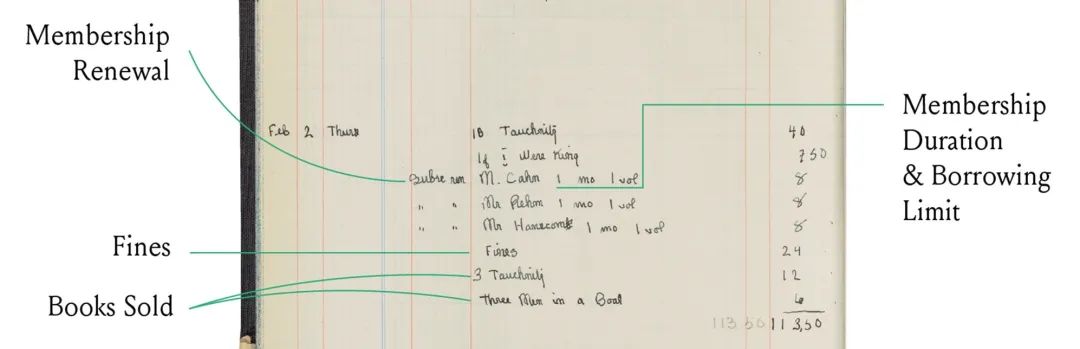 Membership
Renewal
Membership
Duration
& Borrowing
Limit
Fines
Books Sold
Feb 2 Thurs 10 Tauchnitz 40
If I Were King 7 50
Subsc ren M. Cahn 1 mo 1 vol 8
" " Mr Rehm 1 mo 1 vol 8
" " Mr 1 mo 1 vol 8
Fines 24
3 Tauchnitz 12
Three Men in a Boat 6
113 50 113,50